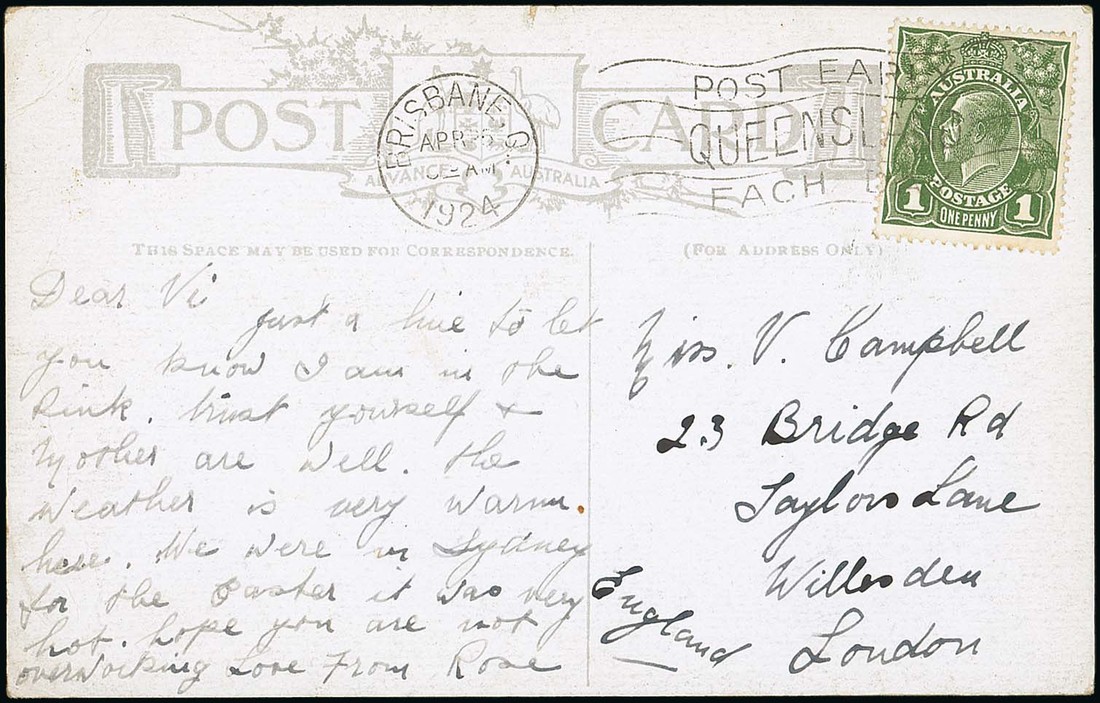 POST CARD
ADVANCE AUSTRALIA
BRISBANE. Q.
APR
AM
1924
POST EAR
QUEENSL
EACH
AUSTRALIA
POSTAGE
1 ONE PENNY 1
THIS SPACE MAY BE USED FOR CORRESPONDENCE.
(FOR ADDRESS ONLY)
Dear Vi
just a line to let
you know I am in the
Pink. trust yourself &
Mother are well. the
weather is very warm
here. We were in Sydney
for the Easter it was very
hot. hope you are not
overworking Love From Rose
Miss. V. Campbell
23 Bridge Rd
Taylors Lane
Willesden
London
England